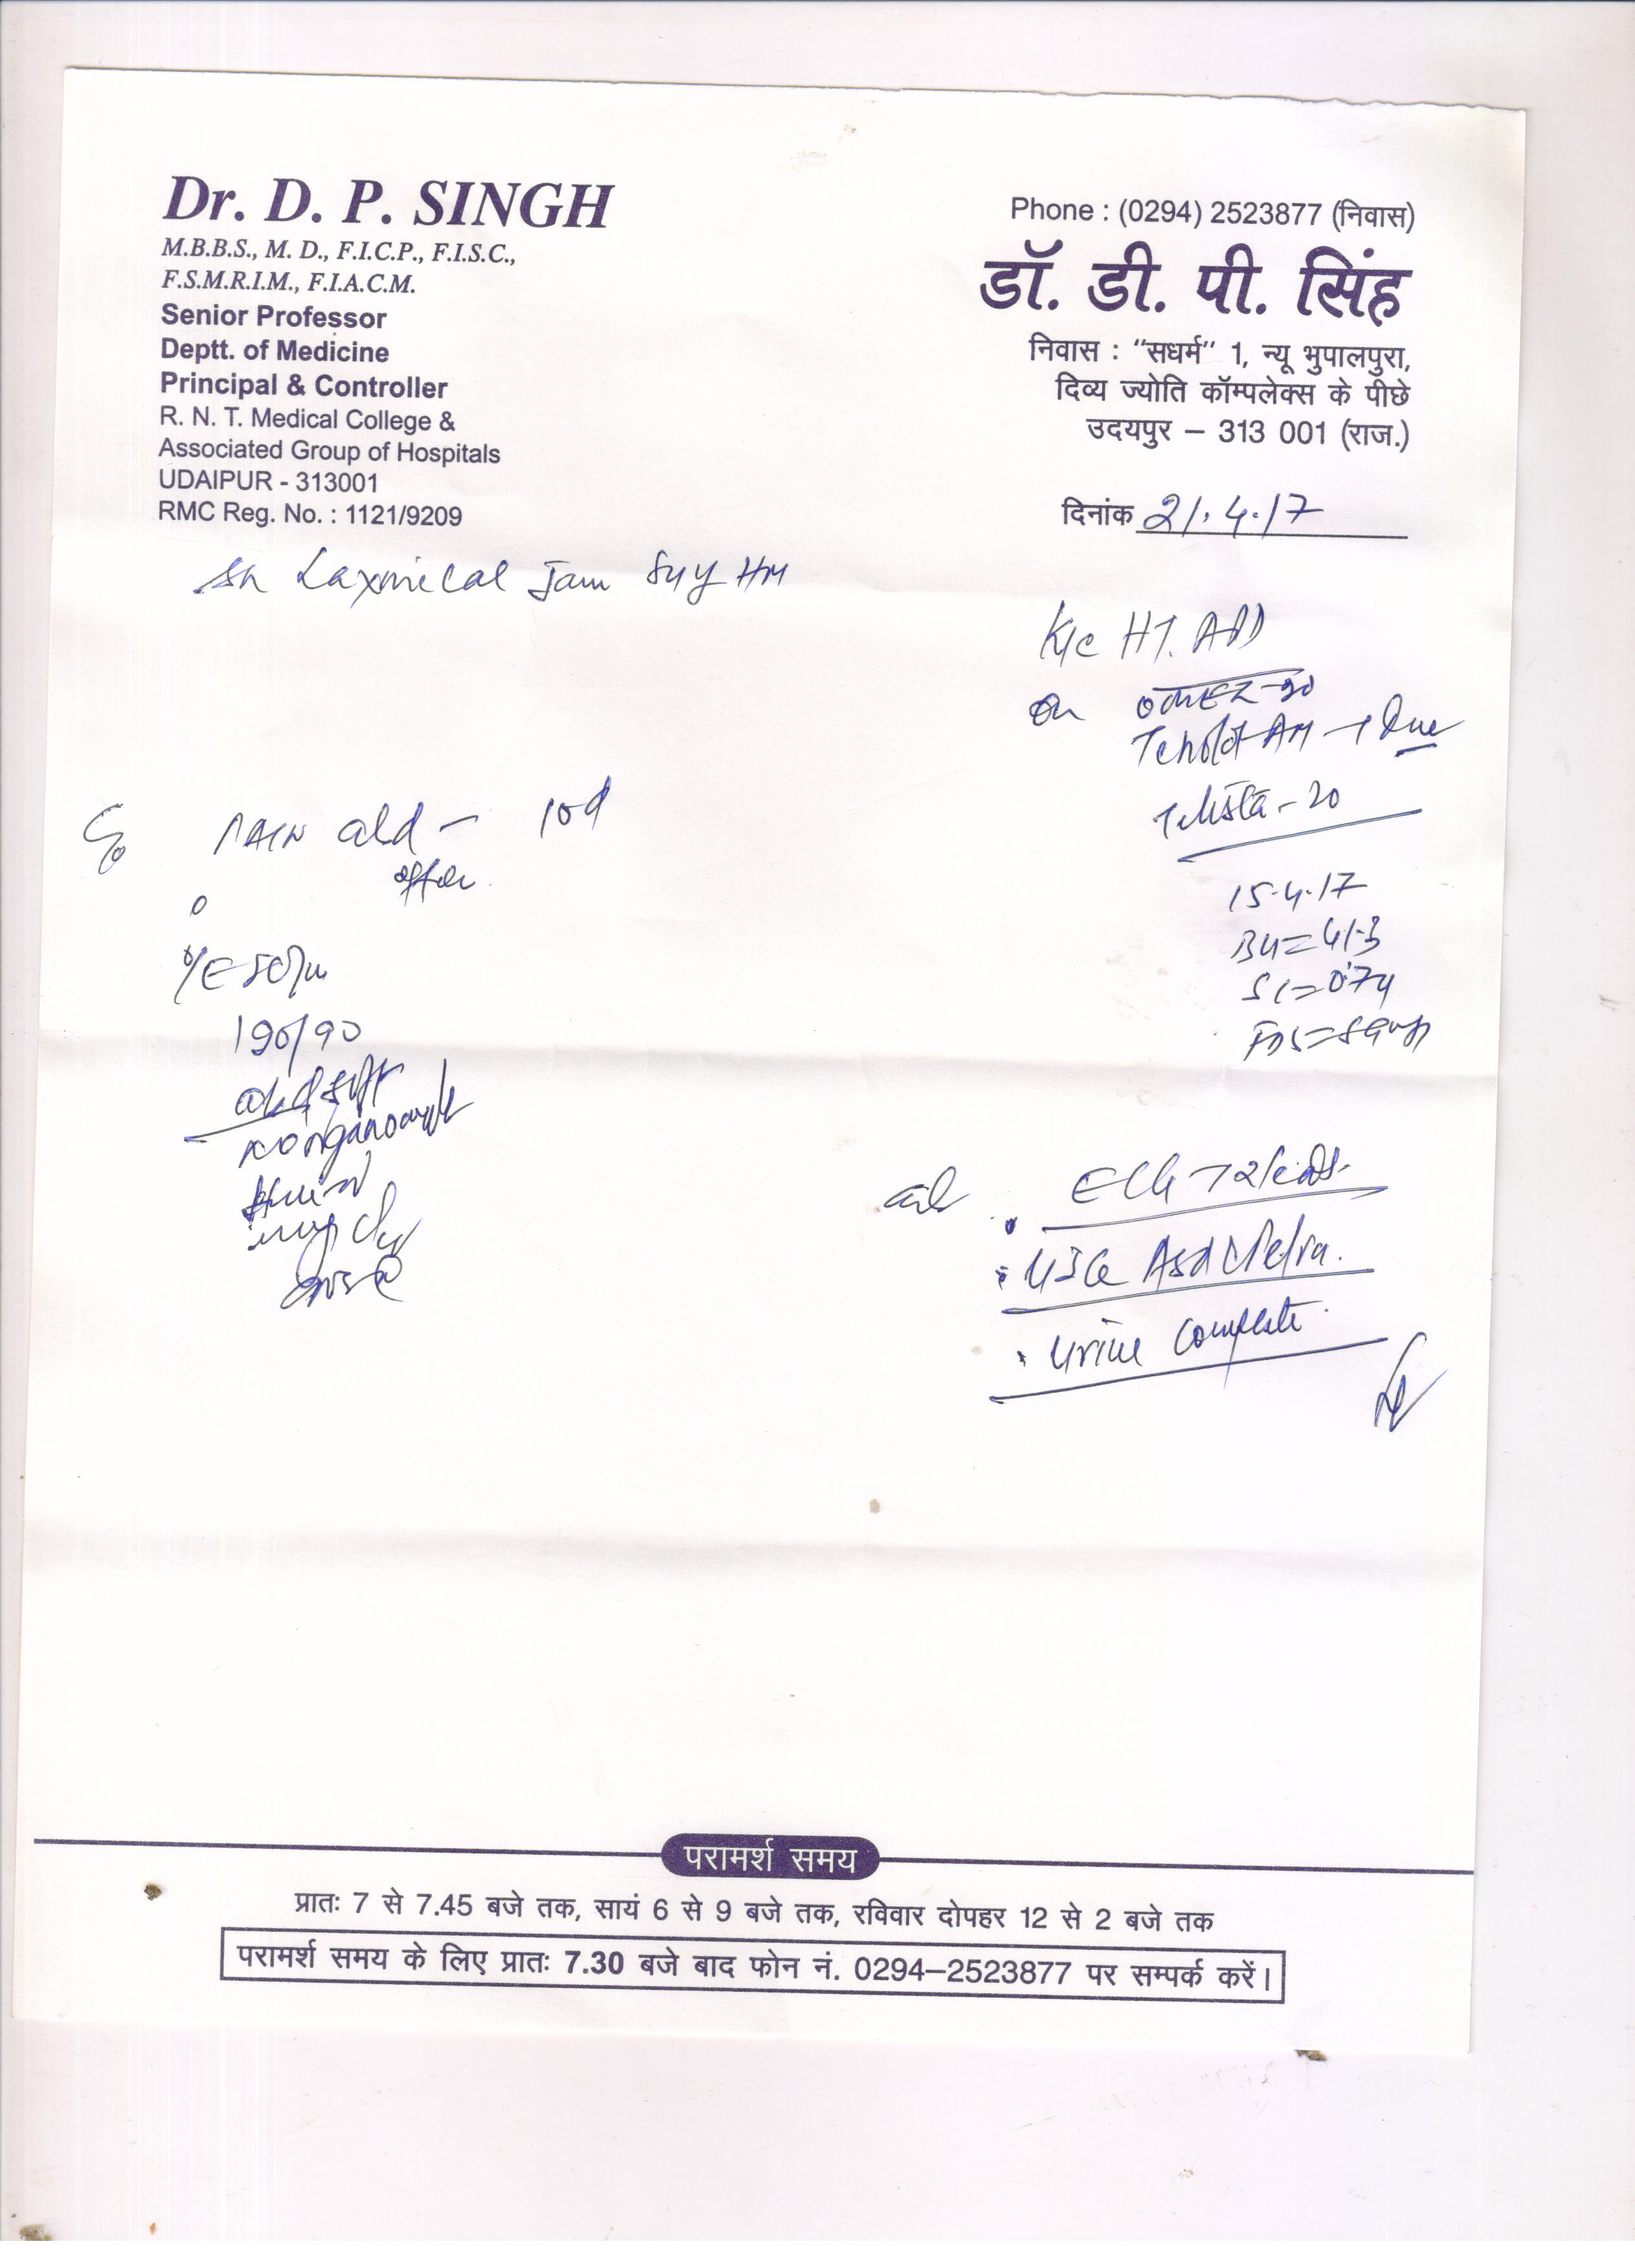 Dr. D. P. SINGH
M.B.B.S., M. D., F.I.C.P., F.I.S.C.,
F.S.M.R.I.M., F.I.A.C.M.
Senior Professor
Deptt. of Medicine
Principal & Controller
R. N. T. Medical College &
Associated Group of Hospitals
UDAIPUR - 313001
RMC Reg. No. : 1121/9209
Phone : (0294) 2523877 (निवास)
डॉ. डी. पी. सिंह
निवास : “सधर्म” 1, न्यू भुपालपुरा,
दिव्य ज्योति कॉम्पलेक्स के पीछे
उदयपुर – 313 001 (राज.)
दिनांक 21.4.17
Laxmilal Jain
K/c HT.
on OMEZ-20
AM
Telista-20
15.4.17
BU=41.3
SC=0.74
C/o PAIN abd - 10d
O/E
190/90
ECG 12 leads
USG Abd Pelvis
Urine Complete
परामर्श समय
प्रातः 7 से 7.45 बजे तक, सायं 6 से 9 बजे तक, रविवार दोपहर 12 से 2 बजे तक
परामर्श समय के लिए प्रातः 7.30 बजे बाद फोन नं. 0294–2523877 पर सम्पर्क करें।